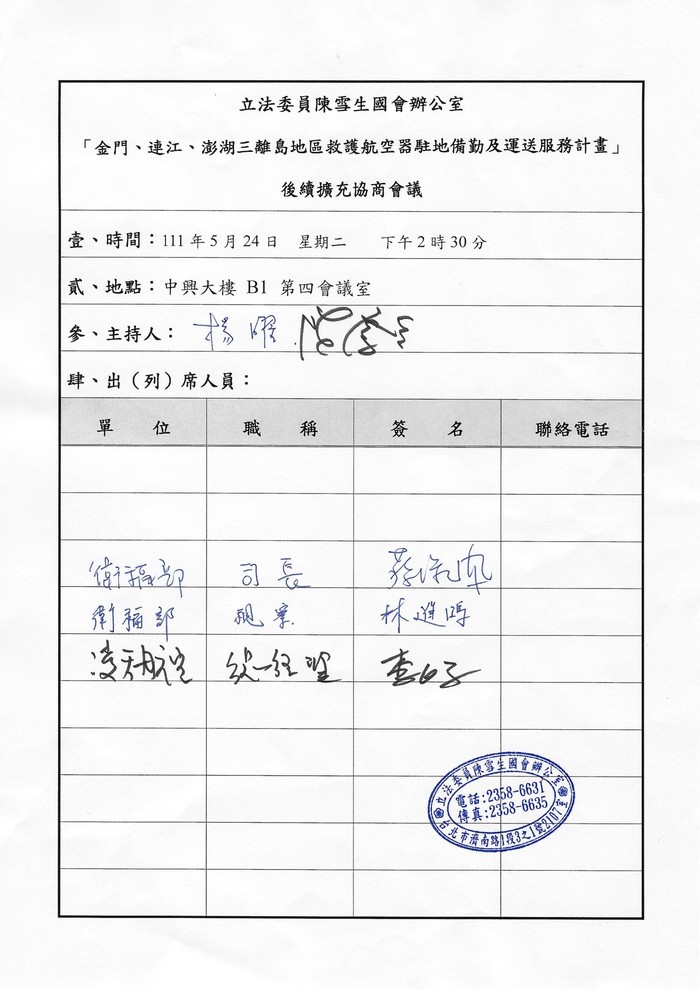 立法委員陳雪生國會辦公室
「金門、連江、澎湖三離島地區救護航空器駐地備勤及運送服務計畫」
後續擴充協商會議
壹、時間：111 年 5 月 24 日 星期二 下午 2 時 30 分
貳、地點：中興大樓 B1 第四會議室
參、主持人： 楊曜
肆、出（列）席人員：
單位 職稱 簽名 聯絡電話
衛福部 司長
衛福部 視察 林進鴻
凌天航空
立法委員陳雪生國會辦公室
電話:2358-6631
傳真:2358-6635
台北市濟南路1段3之1號2107室